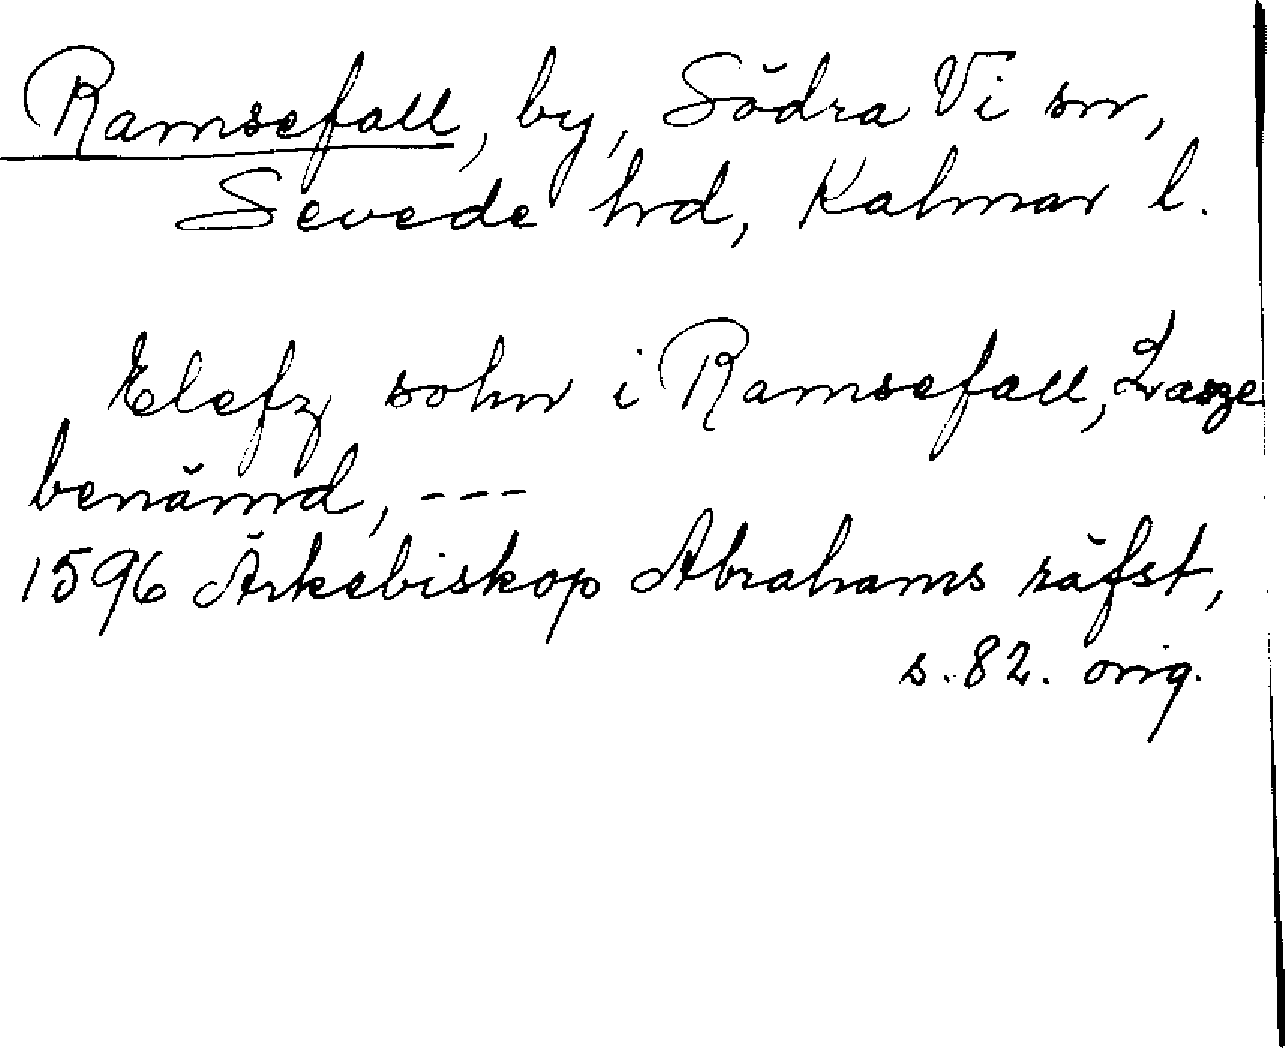 Ramsefall, by, Södra Vi sn,
Sevede hd, Kalmar l.
Elefz sohn i Ramsefall, Lasze
benämd, ---
1596 Ärkebiskop Abrahams räfst,
s. 82. orig.